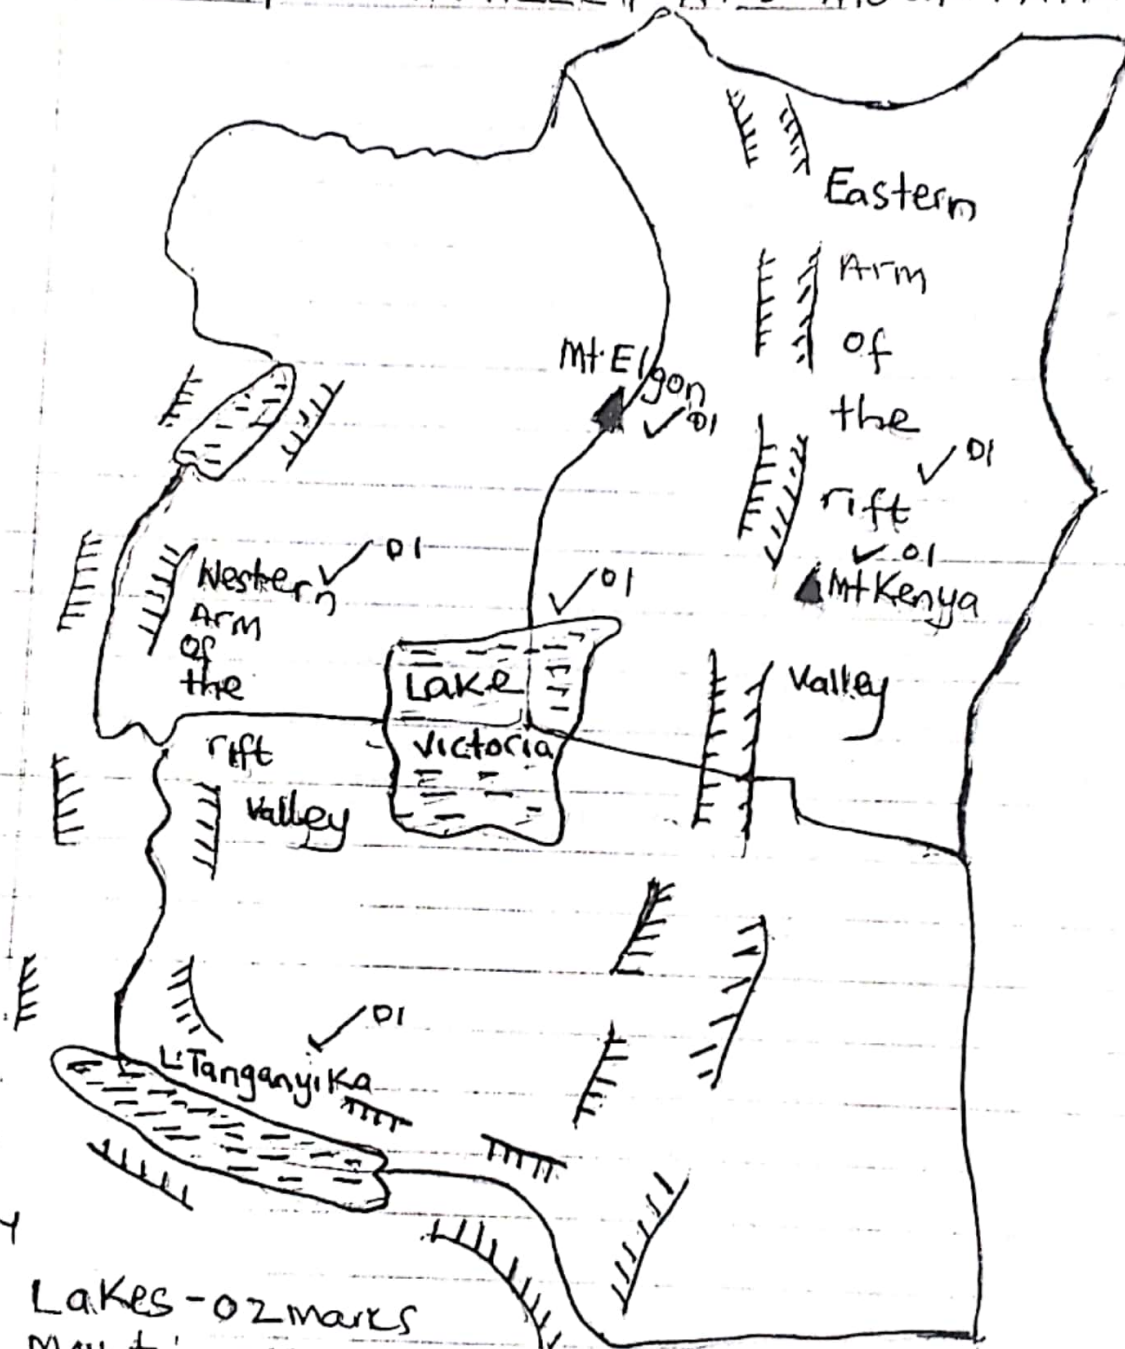 Eastern
Arm
of
the
rift
Valley
✓ 01
Mt. Elgon
✓ 01
✓ 01
Mt Kenya
Western
✓ 01
Arm
of
the
rift
Valley
✓ 01
Lake
Victoria
✓ 01
L. Tanganyika
Lakes - 02 marks